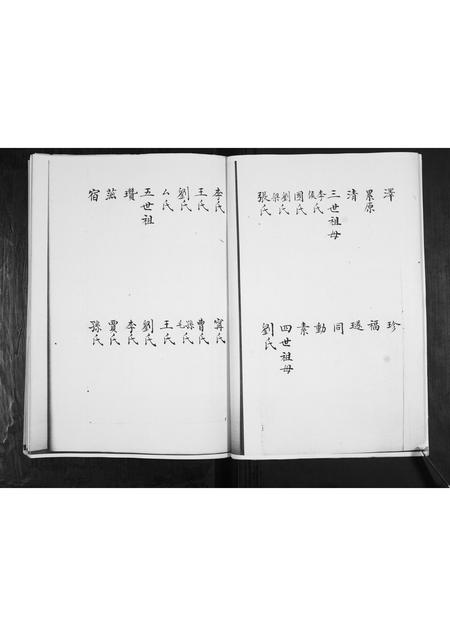 澤
累原
清
三世祖母
李氏
侯氏
國氏
劉氏
梁氏
張氏
珍
福
璲
同
動
素
四世祖母
劉氏
李氏
王氏
劉氏
厶氏
五世祖
瓚
宿
甯氏
曹氏
孫氏
毛氏
王氏
劉氏
李氏
賈氏
孫氏